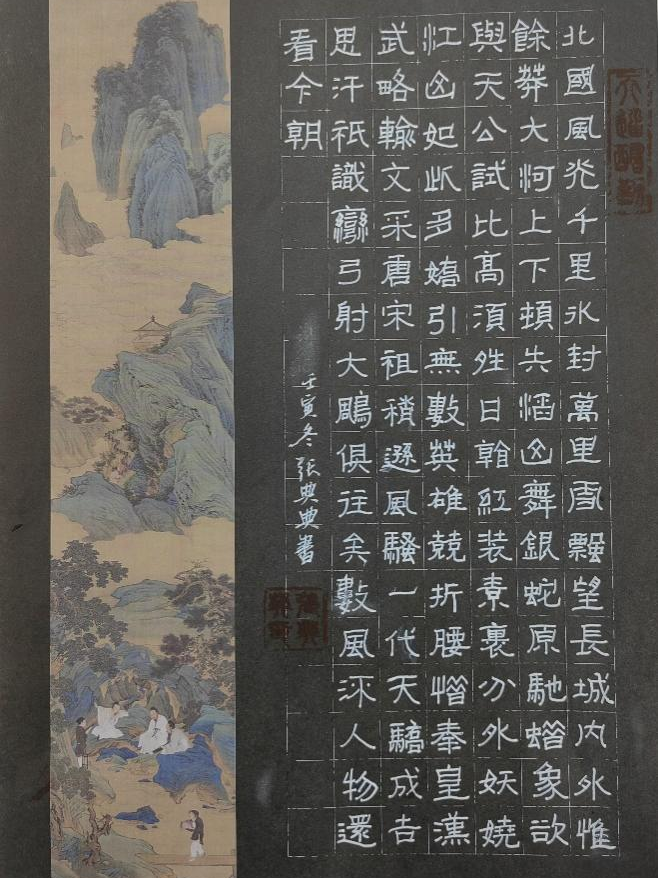 天道酬勤
北國風光千里冰封萬里雪飄望長城内外惟
餘莽大河上下頓失滔山舞銀蛇原馳蠟象欲
與天公試比高須晴日看紅装素裹分外妖嬈
江山如此多嬌引無數英雄競折腰惜秦皇漢
武略輸文采唐宋祖稍遜風騷一代天驕成吉
思汗祇識彎弓射大鵰俱往矣數風流人物還
看今朝
壬寅冬張典典書